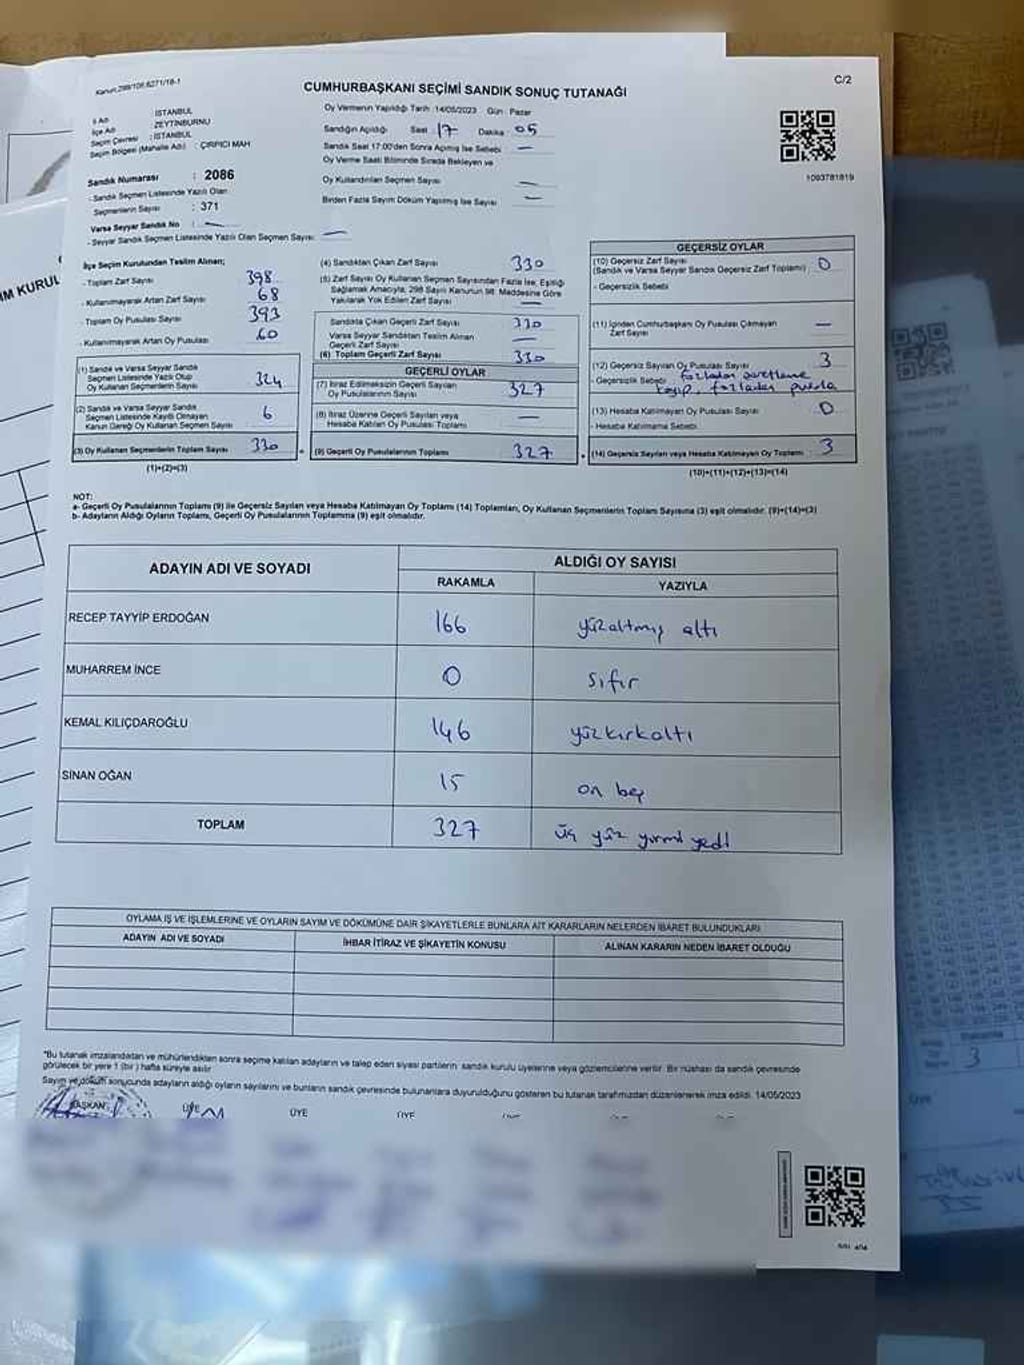 Kanun:298/106.6271/18-1
CUMHURBAŞKANI SEÇİMİ SANDIK SONUÇ TUTANAĞI
C/2
İl Adı : İSTANBUL
İlçe Adı : ZEYTİNBURNU
Seçim Çevresi : İSTANBUL
Seçim Bölgesi (Mahalle Adı) : ÇIRPICI MAH
Sandık Numarası : 2086
- Sandık Seçmen Listesinde Yazılı Olan
Seçmenlerin Sayısı : 371
Varsa Seyyar Sandık No : —
- Seyyar Sandık Seçmen Listesinde Yazılı Olan Seçmen Sayısı: —
Oy Vermenin Yapıldığı Tarih :14/05/2023 Gün : Pazar
Sandığın Açıldığı Saat 17 Dakika 05
Sandık Saat 17:00'den Sonra Açılmış İse Sebebi —
Oy Verme Saati Bitiminde Sırada Bekleyen ve
Oy Kullandırılan Seçmen Sayısı —
Birden Fazla Sayım Döküm Yapılmış İse Sayısı —
1093781819
İlçe Seçim Kurulundan Teslim Alınan;
- Toplam Zarf Sayısı 398
- Kullanılmayarak Artan Zarf Sayısı 68
- Toplam Oy Pusulası Sayısı 393
- Kullanılmayarak Artan Oy Pusulası 60
(1) Sandık ve Varsa Seyyar Sandık
Seçmen Listesinde Yazılı Olup
Oy Kullanan Seçmenlerin Sayısı 324
(2) Sandık ve Varsa Seyyar Sandık
Seçmen Listesinde Kaydı Olmayan
Kanun Gereği Oy Kullanan Seçmen Sayısı 6
(3) Oy Kullanan Seçmenlerin Toplam Sayısı 330
(1)+(2)=(3)
(4) Sandıktan Çıkan Zarf Sayısı 330
(5) Zarf Sayısı Oy Kullanan Seçmen Sayısından Fazla İse, Eşitliği
Sağlamak Amacıyla, 298 Sayılı Kanunun 98. Maddesine Göre
Yakılarak Yok Edilen Zarf Sayısı —
Sandıkta Çıkan Geçerli Zarf Sayısı 330
Varsa Seyyar Sandıktan Teslim Alınan
Geçerli Zarf Sayısı —
(6) Toplam Geçerli Zarf Sayısı 330
GEÇERLİ OYLAR
(7) İtiraz Edilmeksizin Geçerli Sayılan
Oy Pusulalarının Sayısı 327
(8) İtiraz Üzerine Geçerli Sayılan veya
Hesaba Katılan Oy Pusulası Toplamı —
(9) Geçerli Oy Pusulalarının Toplamı 327
GEÇERSİZ OYLAR
(10) Geçersiz Zarf Sayısı
(Sandık ve Varsa Seyyar Sandık Geçersiz Zarf Toplamı) 0
- Geçersizlik Sebebi
(11) İçinden Cumhurbaşkanı Oy Pusulası Çıkmayan
Zarf Sayısı —
(12) Geçersiz Sayılan Oy Pusulası Sayısı 3
- Geçersizlik Sebebi fazladan işaretleme
kayıp, fazladan pusula
(13) Hesaba Katılmayan Oy Pusulası Sayısı 0
- Hesaba Katılmama Sebebi
(14) Geçersiz Sayılan veya Hesaba Katılmayan Oy Toplamı 3
(10)+(11)+(12)+(13)=(14)
NOT:
a- Geçerli Oy Pusulalarının Toplamı (9) ile Geçersiz Sayılan veya Hesaba Katılmayan Oy Toplamı (14) Toplamları, Oy Kullanan Seçmenlerin Toplam Sayısına (3) eşit olmalıdır. (9)+(14)=(3)
b- Adayların Aldığı Oyların Toplamı, Geçerli Oy Pusulalarının Toplamına (9) eşit olmalıdır.
ADAYIN ADI VE SOYADI
ALDIĞI OY SAYISI
RAKAMLA YAZIYLA
RECEP TAYYİP ERDOĞAN 166 yüzaltmış altı
MUHARREM İNCE 0 sıfır
KEMAL KILIÇDAROĞLU 146 yüzkırkaltı
SİNAN OĞAN 15 on beş
TOPLAM 327 üç yüz yirmi yedi
OYLAMA İŞ VE İŞLEMLERİNE VE OYLARIN SAYIM VE DÖKÜMÜNE DAİR ŞİKAYETLERLE BUNLARA AİT KARARLARIN NELERDEN İBARET BULUNDUKLARI
ADAYIN ADI VE SOYADI İHBAR İTİRAZ VE ŞİKAYETİN KONUSU ALINAN KARARIN NEDEN İBARET OLDUĞU
*Bu tutanak imzalandıktan ve mühürlendikten sonra seçime katılan adayların ve talep eden siyasi partilerin sandık kurulu üyelerine veya gözlemcilerine verilir. Bir nüshası da sandık çevresinde
görülecek bir yere 1 (bir) hafta süreyle asılır.
Sayım ve döküm sonucunda adayların aldığı oyların sayılarını ve bunların sandık çevresinde bulunanlara duyurulduğunu gösteren bu tutanak tarafımızdan düzenlenerek imza edildi. 14/05/2023
BAŞKAN ÜYE ÜYE ÜYE
IM KURUL
3
ÜYE